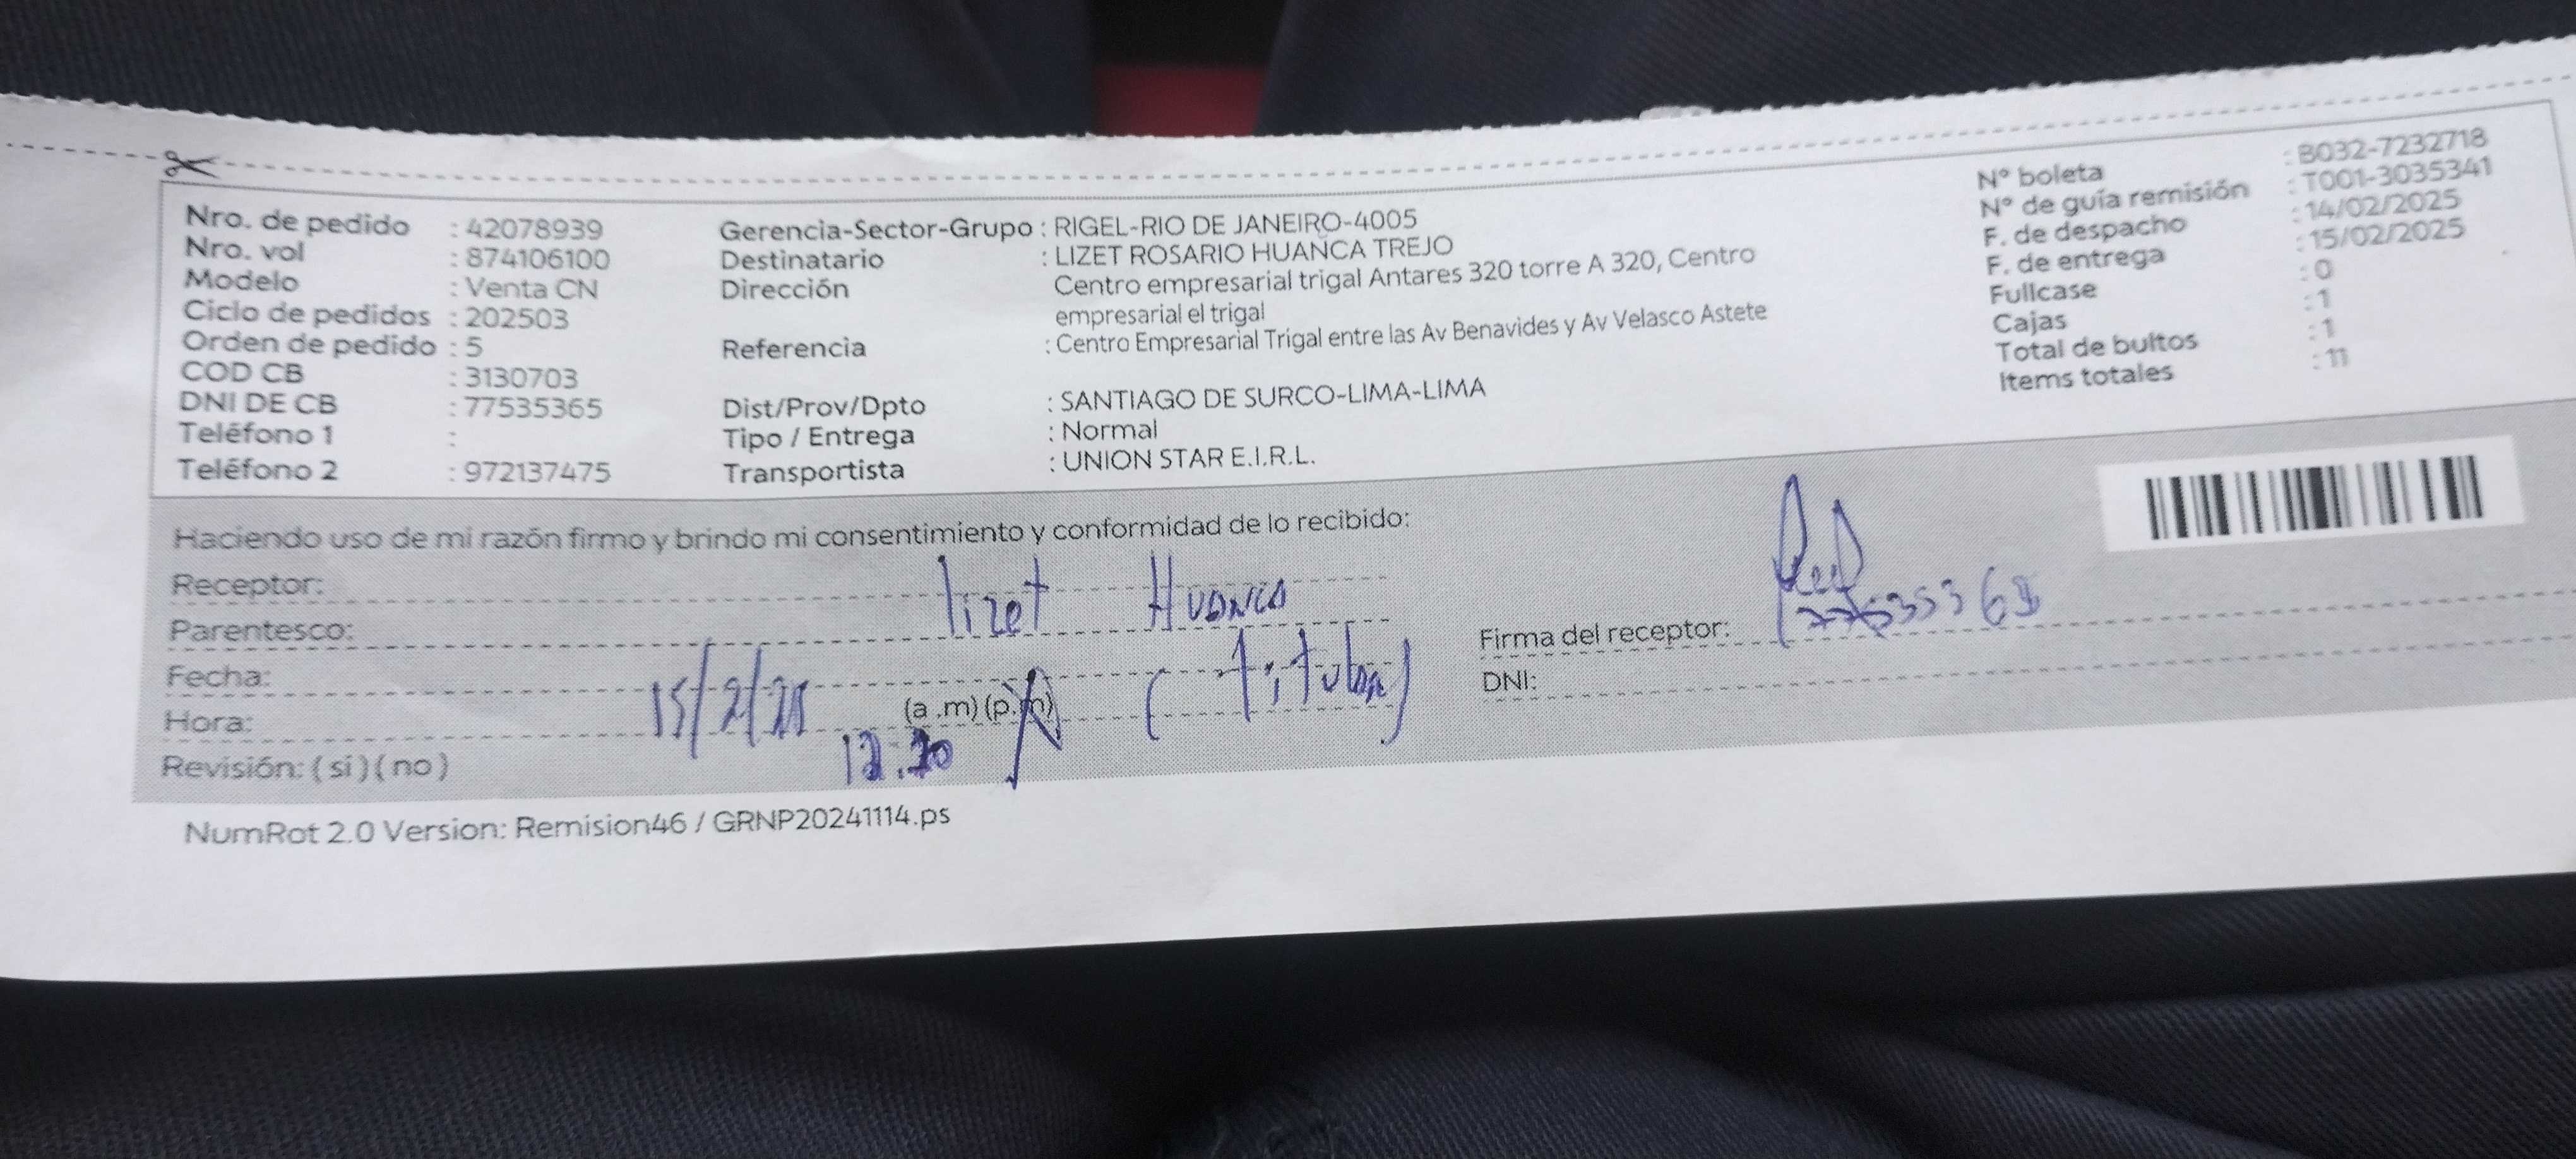 Nro. de pedido : 42078939
Nro. vol : 874106100
Modelo : Venta CN
Ciclo de pedidos : 202503
Orden de pedido : 5
COD CB : 3130703
DNI DE CB : 77535365
Teléfono 1 :
Teléfono 2 : 972137475
Gerencia-Sector-Grupo : RIGEL-RIO DE JANEIRO-4005
Destinatario : LIZET ROSARIO HUANCA TREJO
Dirección Centro empresarial trigal Antares 320 torre A 320, Centro
empresarial el trigal
Referencia : Centro Empresarial Trigal entre las Av Benavides y Av Velasco Astete
Dist/Prov/Dpto : SANTIAGO DE SURCO-LIMA-LIMA
Tipo / Entrega : Normal
Transportista : UNION STAR E.I.R.L.
N° boleta : B032-7232718
N° de guía remisión : T001-3035341
F. de despacho : 14/02/2025
F. de entrega : 15/02/2025
Fullcase : 0
Cajas : 1
Total de bultos : 1
Items totales : 11
Haciendo uso de mi razón firmo y brindo mi consentimiento y conformidad de lo recibido:
Receptor: lizet Huanca
Parentesco: (titular)
Fecha: 15/2/25
Hora: 12:20 (a .m) (p.m)
Revisión: ( si ) ( no )
Firma del receptor:
DNI:
NumRot 2.0 Version: Remision46 / GRNP20241114.ps